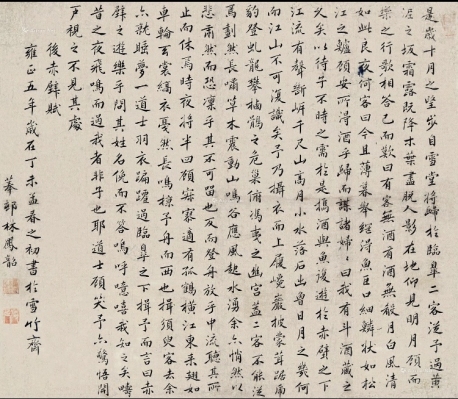 是歲十月之望步自雪堂將歸於臨皋二客從予過黃
泥之坂霜露既降木葉盡脫人影在地仰見明月顧而
樂之行歌相答已而歎曰有客無酒有酒無殽月白風清
如此良夜何客曰今且薄暮舉網得魚巨口細鱗狀如松
江之鱸顧安所得酒乎歸而謀諸婦婦曰我有斗酒藏之
久矣以待子不時之需於是攜酒與魚復遊於赤壁之下
江流有聲斷岸千尺山高月小水落石出曾日月之幾何
而江山不可復識矣予乃攝衣而上履巉巖披蒙茸踞虎
豹登虬龍攀栖鶻之危巢俯馮夷之幽宮蓋二客不能從
焉劃然長嘯草木震動山鳴谷應風起水湧余亦悄然以
悲肅然而恐凜乎其不可留也反而登舟放乎中流聽其所
止而休焉時夜將半四顧寂寥適有孤鶴橫江東來翅如
車輪玄裳縞衣戛然長鳴掠予舟而西也揖須臾客去余
亦就睡夢一道士羽衣蹁躚過臨皋之下揖予而言曰赤
壁之遊樂乎問其姓名俛而不答嗚呼噫嘻我知之矣疇
昔之夜飛鳴而過我者非子也耶道士顧笑予亦驚悟開
戶視之不見其處
後赤壁賦
雍正五年歲在丁未孟春之初書於雪竹齋
林鳳韶